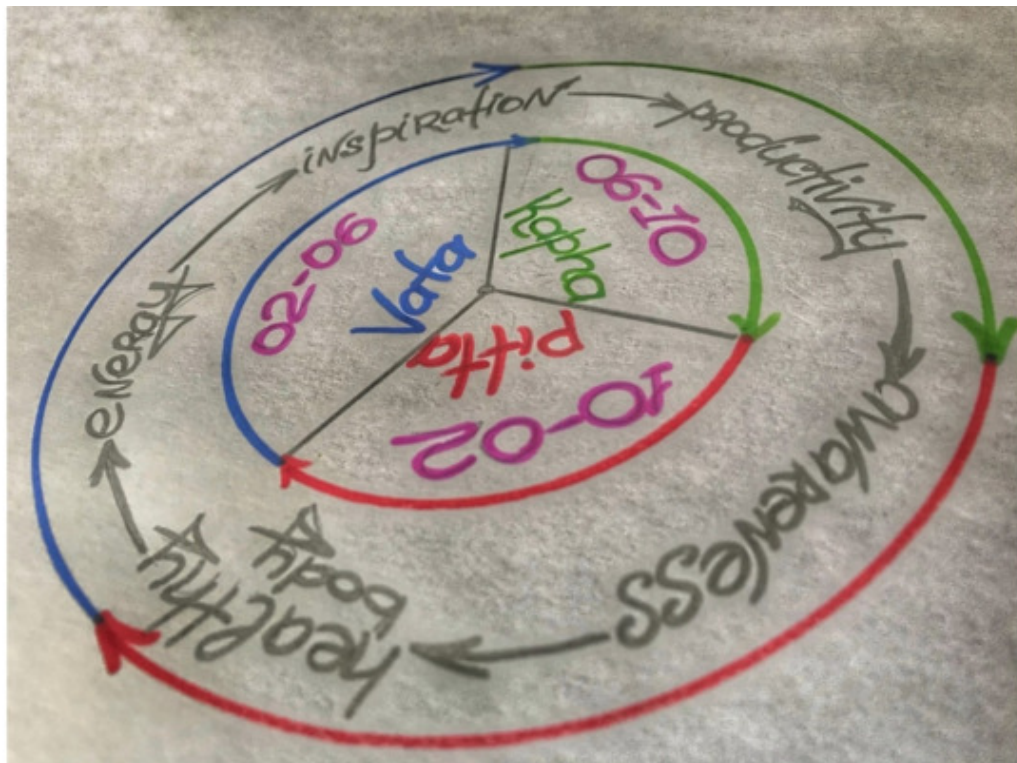 inspiration
productivity
awareness
healthy
body
energy
06-10
Kapha
10-02
pitta
02-06
Vata